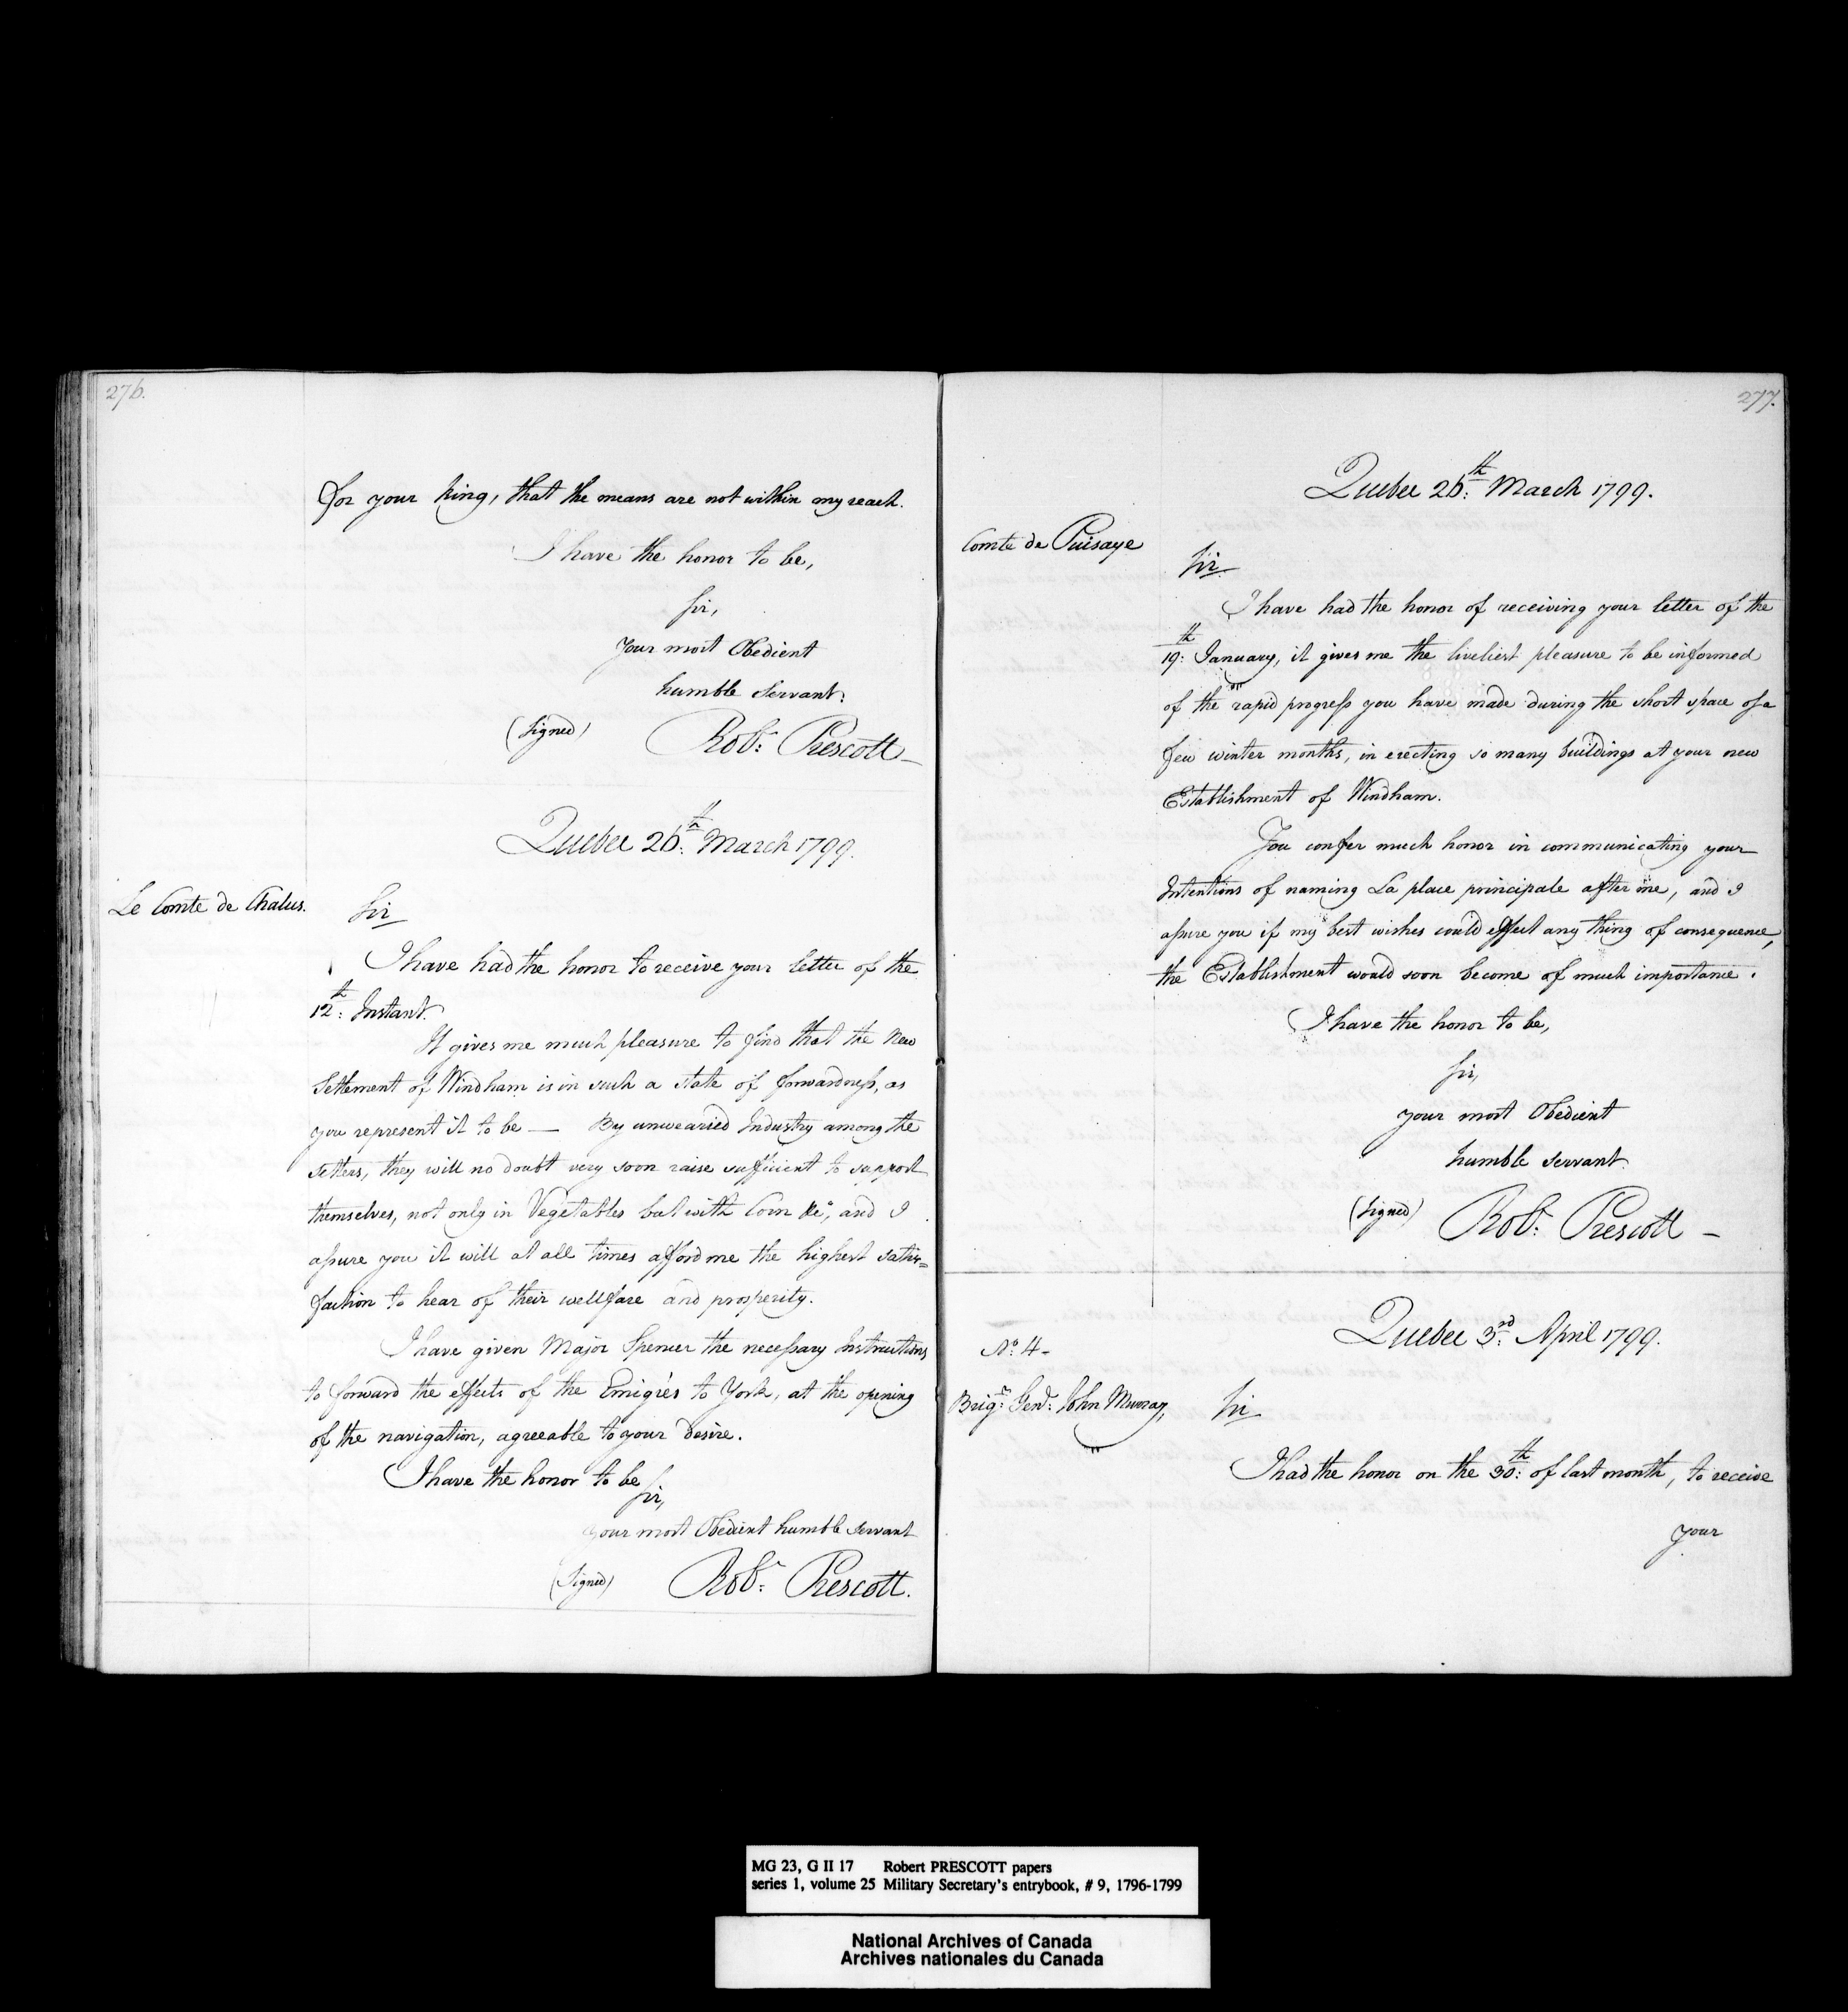 276.
for your King, that the means are not within my reach.
I have the honor to be,
Sir,
Your most Obedient
humble Servant.
(Signed) Robt: Prescott
Quebec 26th: March 1799.
Le Comte de Chalus.
Sir
I have had the honor to receive your letter of the
12th: Instant.
It gives me much pleasure to find that the New
Settlement of Windham is in such a state of forwardness, as
you represent it to be — By unwearied Industry among the
settlers, they will no doubt very soon raise sufficient to support
themselves, not only in Vegetables but with Corn &ca, and I
assure you it will at all times afford me the highest satis=
faction to hear of their wellfare and prosperity.
I have given Major Spencer the necessary Instructions
to forward the effects of the Emigrés to York, at the opening
of the navigation, agreeable to your desire.
I have the honor to be
Sir,
your most Obedient humble servant
(Signed) Robt: Prescott.
277.
Quebec 26th: March 1799.
Comte de Puisaye
Sir
I have had the honor of receiving your letter of the
19th: January, it gives me the liveliest pleasure to be informed
of the rapid progress you have made during the short space of a
few winter months, in erecting so many buildings at your new
Establishment of Windham.
You confer much honor in communicating your
Intentions of naming La place principale after me, and I
assure you if my best wishes could effect any thing of consequence,
the Establishment would soon become of much importance.
I have the honor to be,
Sir,
your most Obedient
humble servant.
(Signed) Robt: Prescott —
Quebec 3rd: April 1799.
No: 4 -
Brigr: Genl: John Murray,
Sir
I had the honor on the 30th: of last month, to receive
your
MG 23, G II 17 Robert PRESCOTT papers
series 1, volume 25 Military Secretary's entrybook, # 9, 1796-1799
National Archives of Canada
Archives nationales du Canada